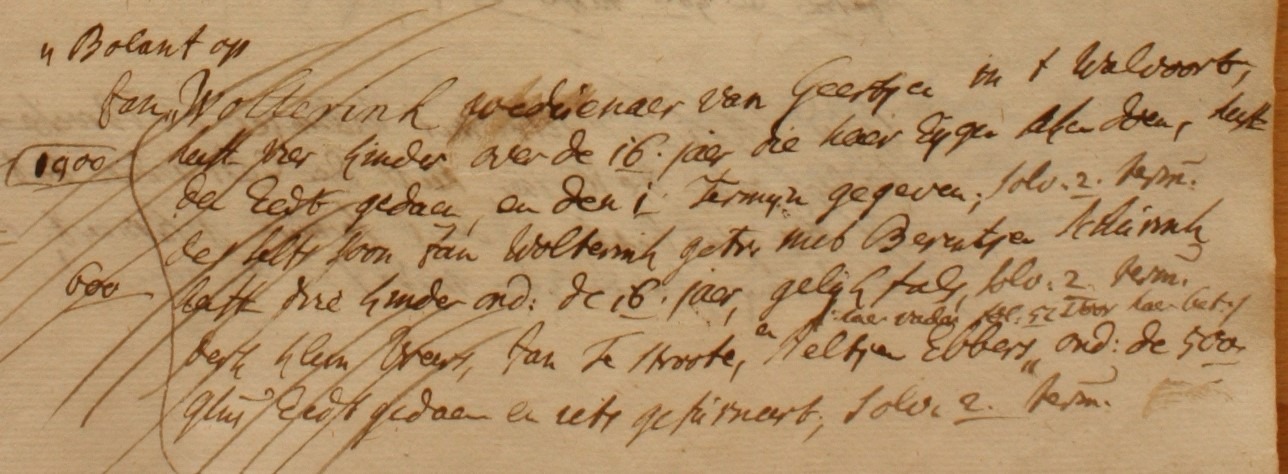 Bolant op
Jan Wolterink weduenaer van Geertjen in t Walvoort,
1900 heeft vier kinder over de 16. jaer die haer Eygen doen, heeft
den Eedt gedaen, en den 1 Termyn gegeven; solv. 2. term.
de soon Jan Wolterink getr. met Berentjen
600 heeft drie kinder ond: de 16. jaer, gelyk solv. 2. term.
haer vader door haer
derk klein Jan Te Stroote, en Aeltjen Ebbers, ond: de 500
Eedt gedaen en iets solv. 2. term.